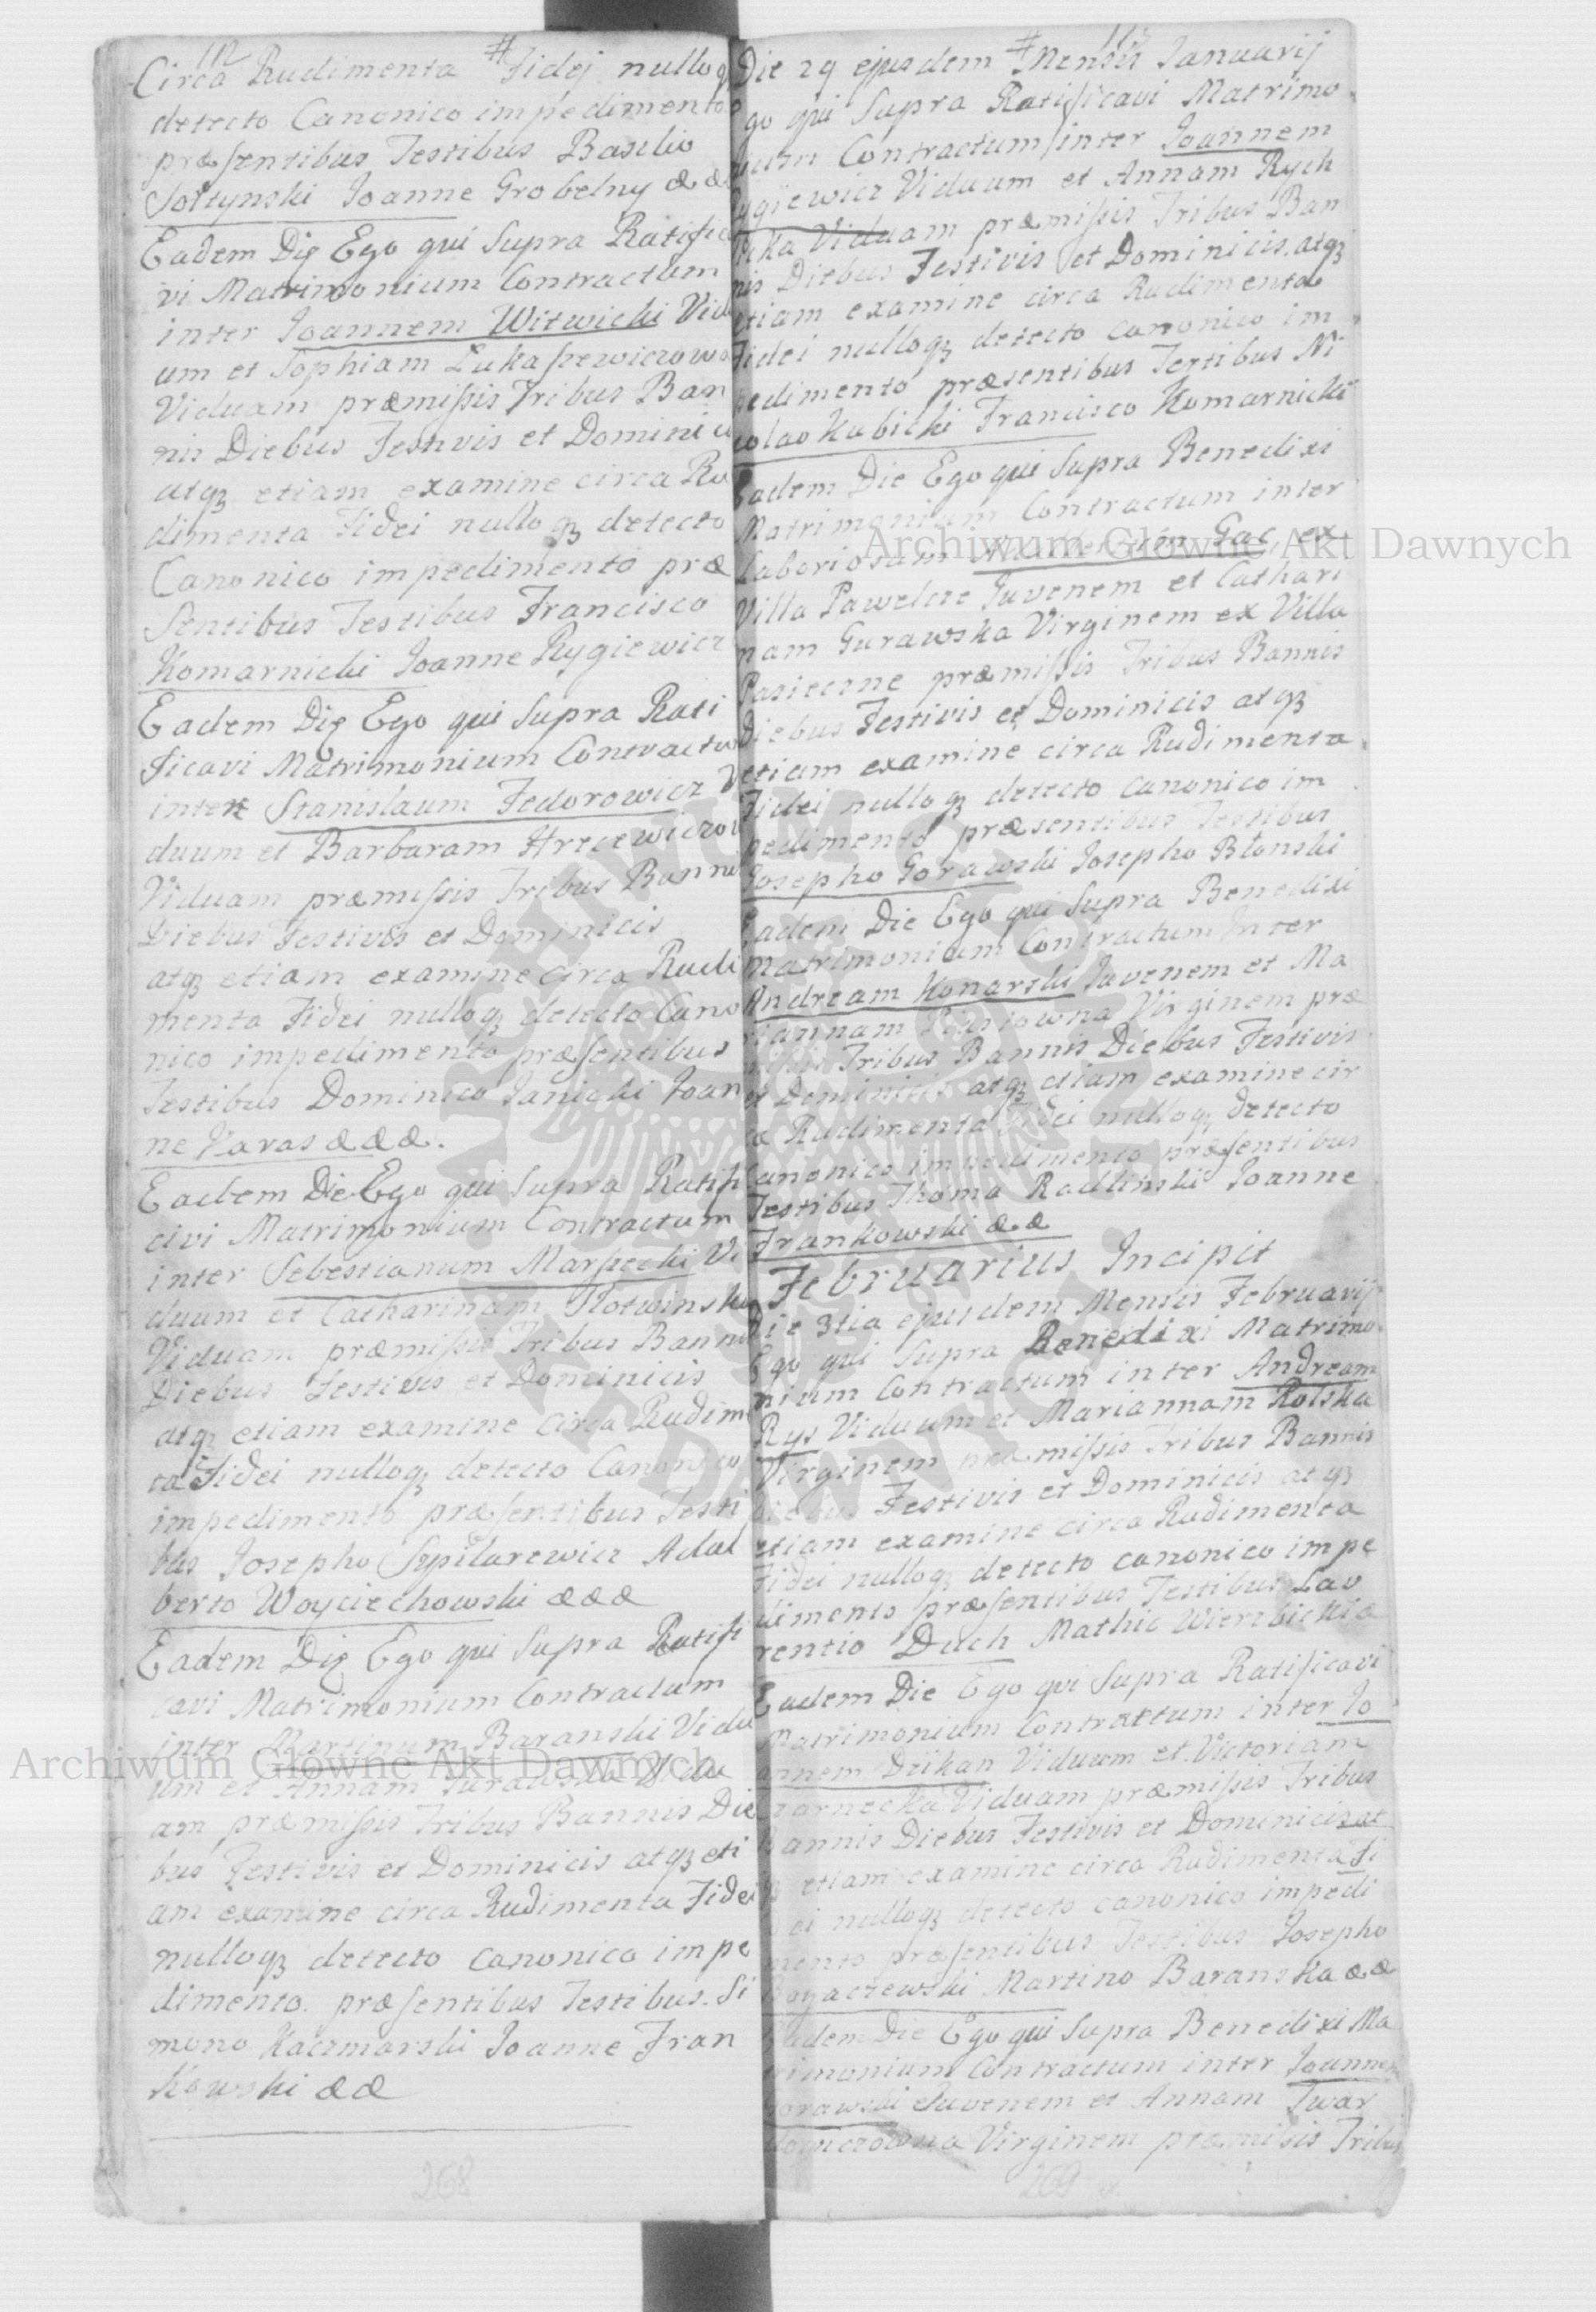 112
Circa Rudimenta # Fidej nulloq
detecto Canonico impedimento
præsentibus Testibus Basilio
Sołtynski Joanne Grobelny & &
Eadem Die Ego qui Supra Ratifica
vi Matrimonium Contractum
inter Joannem Witwicki Vidu
um et Sophiam Łukaszewiczowa
Viduam præmissis Tribus Ban
nis Diebus Festivis et Dominici
atqz etiam examine circa Ru
dimenta Fidei nulloqz detecto
Canonico impedimento præ
Sentibus Testibus Francisco
Komarnicki Joanne Rygiewicz
Eadem Die Ego qui Supra Rati
ficavi Matrimonium Contractu
inter Stanislaum Fedorowicz Vi
duum et Barbaram
Viduam præmissis Tribus Banni
Diebus Festivis et Dominicis
atqz etiam examine circa Rudi
menta Fidei nulloqz detecto Cano
nico impedimento præsentibus
Testibus Dominico Janicki Joan
ne Varas & & &.
Eadem Die Ego qui Supra Ratifi
civi Matrimonium Contractum
inter Sebestianum Marszecki Vi
duum et Catharinam Kotwinska
Viduam præmissis Tribus Banni
Diebus Festivis et Dominicis
atqz etiam examine circa Rudim
ta Fidei nulloqz detecto Canonico
impedimento præsentibus Testi
bus Josepho Szpilarewicz Adal
berto Woyciechowski & & &
Eadem Die Ego qui Supra Ratifi
cavi Matrimonium Contractum
inter Martinum Baranski Vidu
um et Annam Vidu
am præmissis Tribus Bannis Die
bus Festivis et Dominicis atqz eti
am examine circa Rudimenta Fidei
nulloqz detecto canonico impe
dimento præsentibus Testibus Si
mono Kaczmarski Joanne Fran
kowski & &
268
113
Die 29 ejusdem # Mensis Januarij
go qui Supra Ratificavi Matrimo
nium Contractum inter Joannem
ygiewicz Viduum et Annam Rych
cka Viduam præmissis Tribus Ban
nis Diebus Festivis et Dominicis atqz
etiam examine circa Rudimenta
Fidei nulloqz detecto canonico im
pedimento præsentibus Testibus Ni
colao Kubicki Francisco Komarnicki
Eadem Die Ego qui Supra Benedixi
Matrimonium Contractum inter
Laboriosum Gac ex
Villa Pawelcze Juvenem et Cathari
nam Gurawska Virginem ex Villa
Pasieczne præmissis Tribus Bannis
Diebus Festivis et Dominicis atqz
etiam examine circa Rudimenta
Fidei nulloqz detecto canonico im
pedimento præsentibus Testibus
Josepho Gorawski Josepho Błonski
Eadem Die Ego qui Supra Benedixi
Matrimonium Contractum Inter
Andream Konarski Juvenem et Ma
riannam Virginem præ
missis Tribus Bannis Diebus Festivis
et Dominicis atqz etiam examine cir
ca Rudimenta Fidei nulloqz detecto
Canonico impedimento præsentibus
Testibus Thoma Radlinski Joanne
Frankowski & &
Februarius Incipit
Die 3tia ejusdem Mensis Februarij
Ego qui Supra Benedixi Matrimo
nium Contractum inter Andream
Rys Viduum et Mariannam Rolska
Virginem præmissis Tribus Bannis
Diebus Festivis et Dominicis atqz
etiam examine circa Rudimenta
Fidei nulloqz detecto canonico impe
dimento præsentibus Testibus Lav
rentio Duch Mathia Wierzbicki &
Eadem Die Ego qui Supra Ratificavi
Matrimonium Contractum inter Jo
annem Dzikan Viduum et Victoriam
Czarnecka Viduam præmissis Tribus
Bannis Diebus Festivis et Dominicis at
qz etiam examine circa Rudimenta Fi
dei nulloqz detecto canonico impedi
mento præsentibus Testibus Josepho
Martino Baranska & &
Eadem Die Ego qui Supra Benedixi Ma
trimonium Contractum inter Joannem
Gorawski Juvenem et Annam Twar
Virginem præmissis Tribus
269
Archiwum Główne Akt Dawnych
Archiwum Główne Akt Dawnych
ARCHIWUM GŁÓWNE AKT DAWNYCH